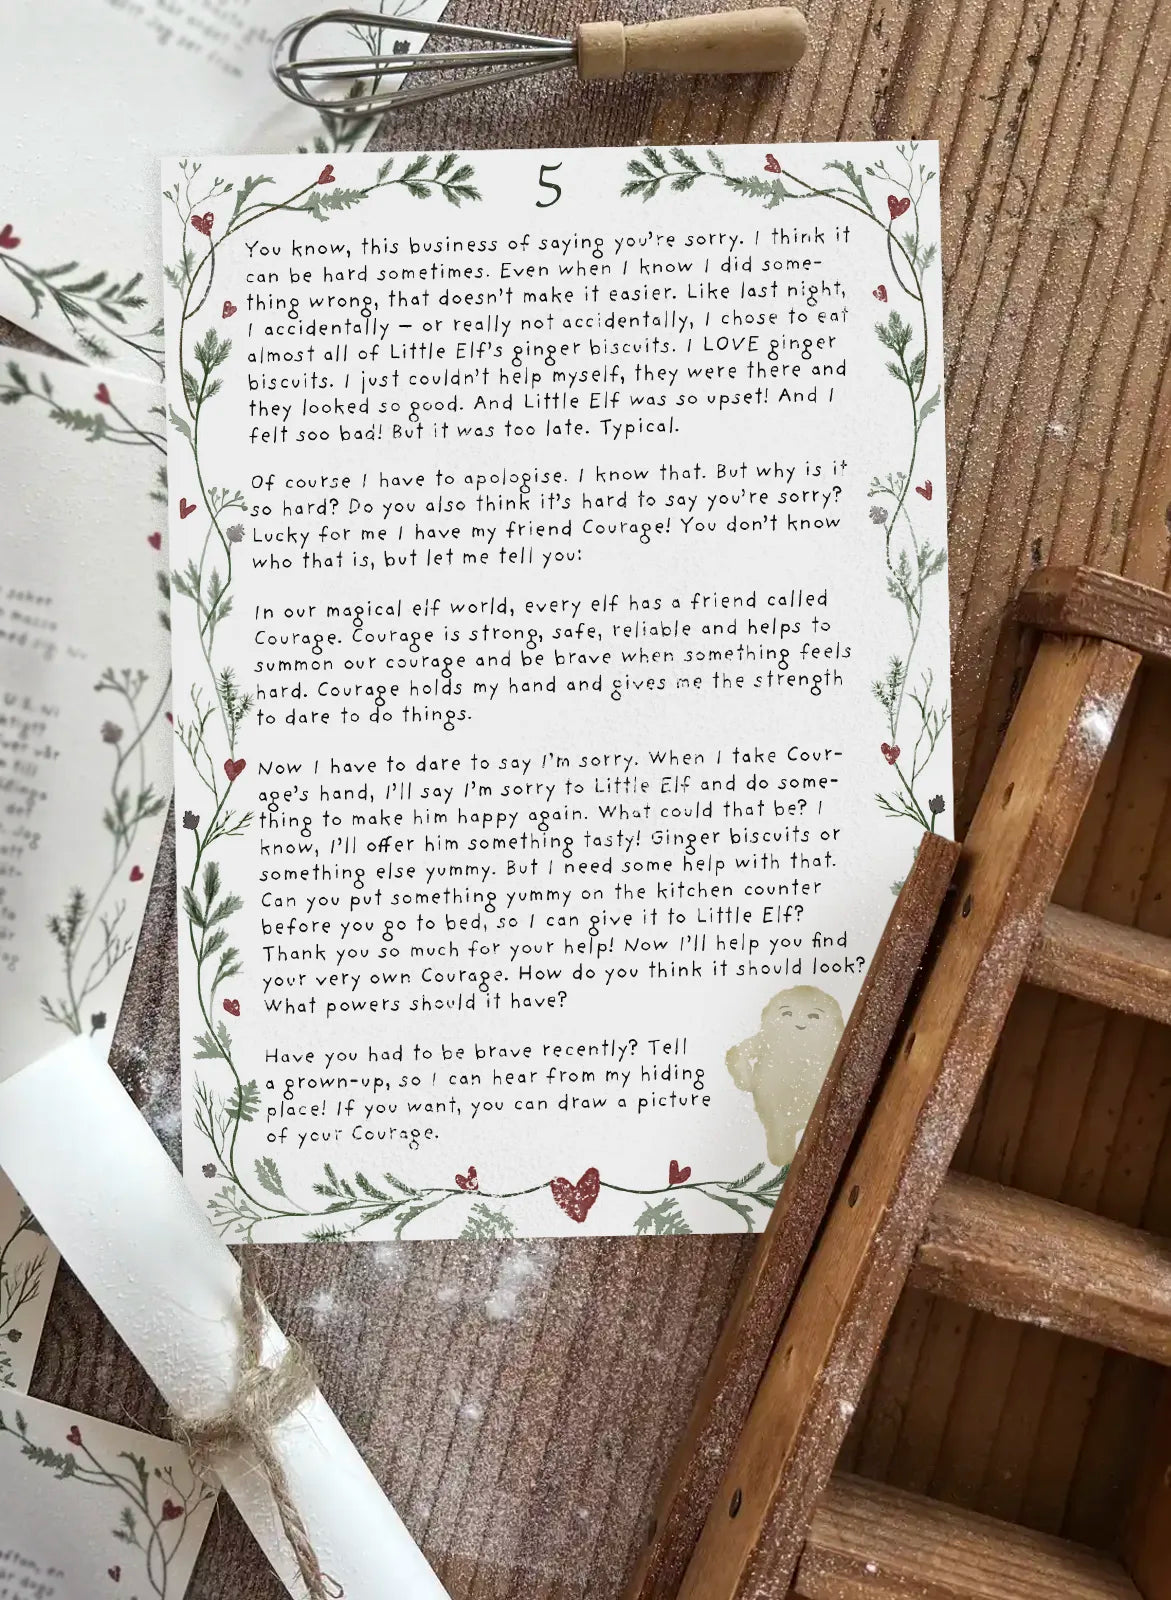 5
You know, this business of saying you're sorry. I think it
can be hard sometimes. Even when I know I did some-
thing wrong, that doesn't make it easier. Like last night,
I accidentally – or really not accidentally, I chose to eat
almost all of Little Elf's ginger biscuits. I LOVE ginger
biscuits. I just couldn't help myself, they were there and
they looked so good. And Little Elf was so upset! And I
felt soo bad! But it was too late. Typical.
Of course I have to apologise. I know that. But why is it
so hard? Do you also think it's hard to say you're sorry?
Lucky for me I have my friend Courage! You don't know
who that is, but let me tell you:
In our magical elf world, every elf has a friend called
Courage. Courage is strong, safe, reliable and helps to
summon our courage and be brave when something feels
hard. Courage holds my hand and gives me the strength
to dare to do things.
Now I have to dare to say I'm sorry. When I take Cour-
age's hand, I'll say I'm sorry to Little Elf and do some-
thing to make him happy again. What could that be? I
know, I'll offer him something tasty! Ginger biscuits or
something else yummy. But I need some help with that.
Can you put something yummy on the kitchen counter
before you go to bed, so I can give it to Little Elf?
Thank you so much for your help! Now I'll help you find
your very own Courage. How do you think it should look?
What powers should it have?
Have you had to be brave recently? Tell
a grown-up, so I can hear from my hiding
place! If you want, you can draw a picture
of your Courage.